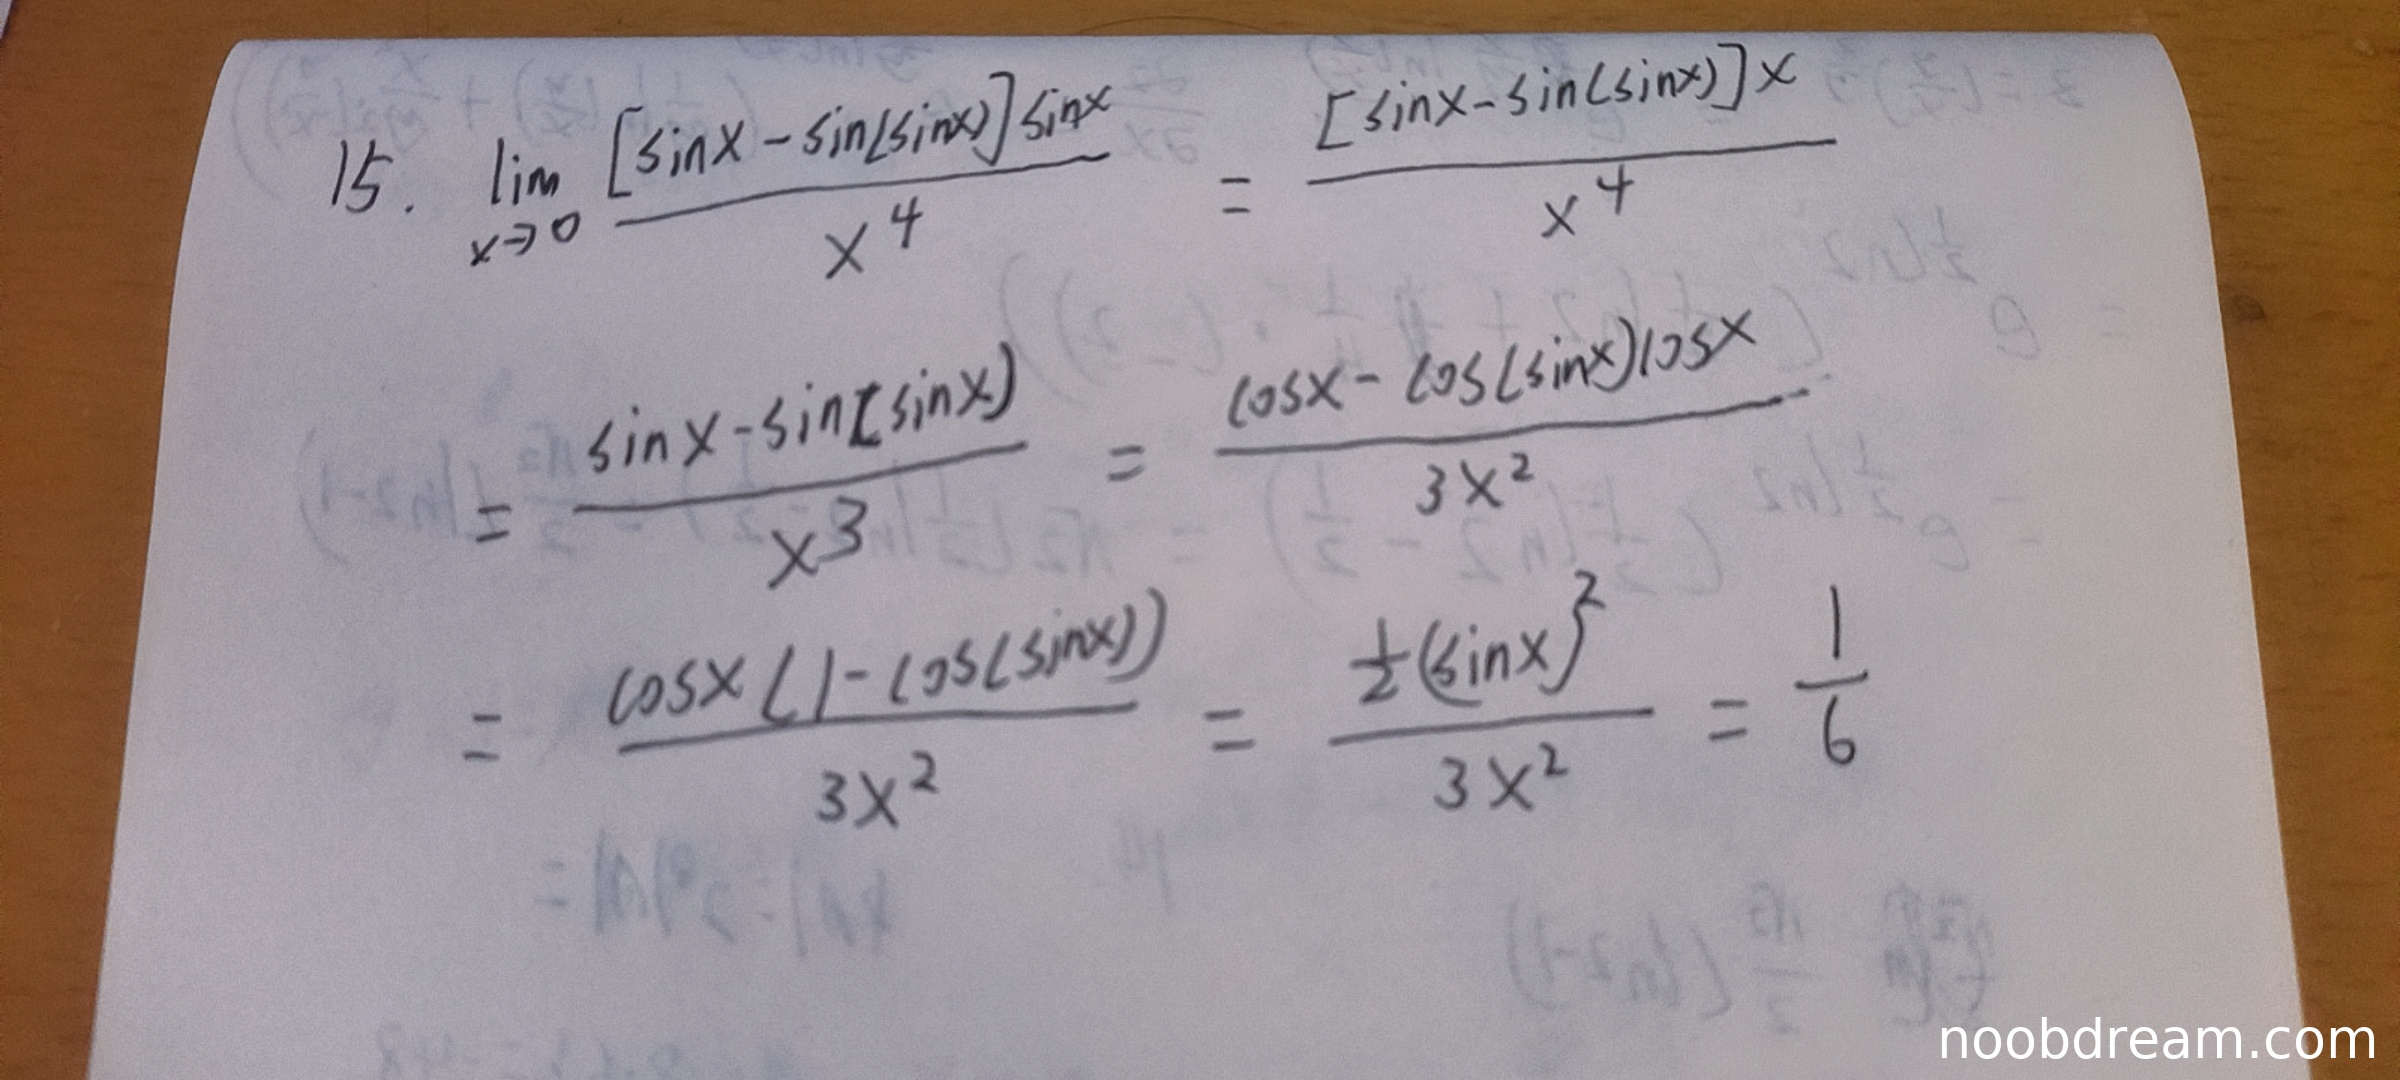 15. lim x→0 [sinx-sin(sinx)]sinx / x^4 = [sinx-sin(sinx)]x / x^4
= sinx-sin(sinx) / x^3 = cosx-cos(sinx)cosx / 3x^2
= cosx(1-cos(sinx)) / 3x^2 = 1/2(sinx)^2 / 3x^2 = 1/6
noobdream.com